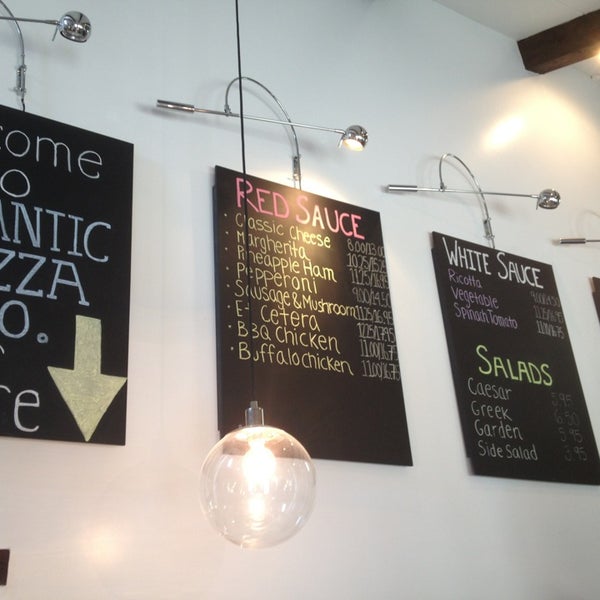 come
O
ANTIC
ZZA
O.
re
RED SAUCE
Classic Cheese 8.00/13.00
Margherita 10.25/15.25
Pineapple Ham 11.25/16.95
Pepperoni 9.00/14.50
Sausage & Mushroom 11.75/16.95
Et Cetera 12.25/17.95
BBQ Chicken 11.00/16.75
Buffalo Chicken 11.00/16.75
WHITE SAUCE
Ricotta
Vegetable
Spinach Tomato
SALADS
Caesar 5.95
Greek 6.50
Garden 5.95
Side Salad 3.95